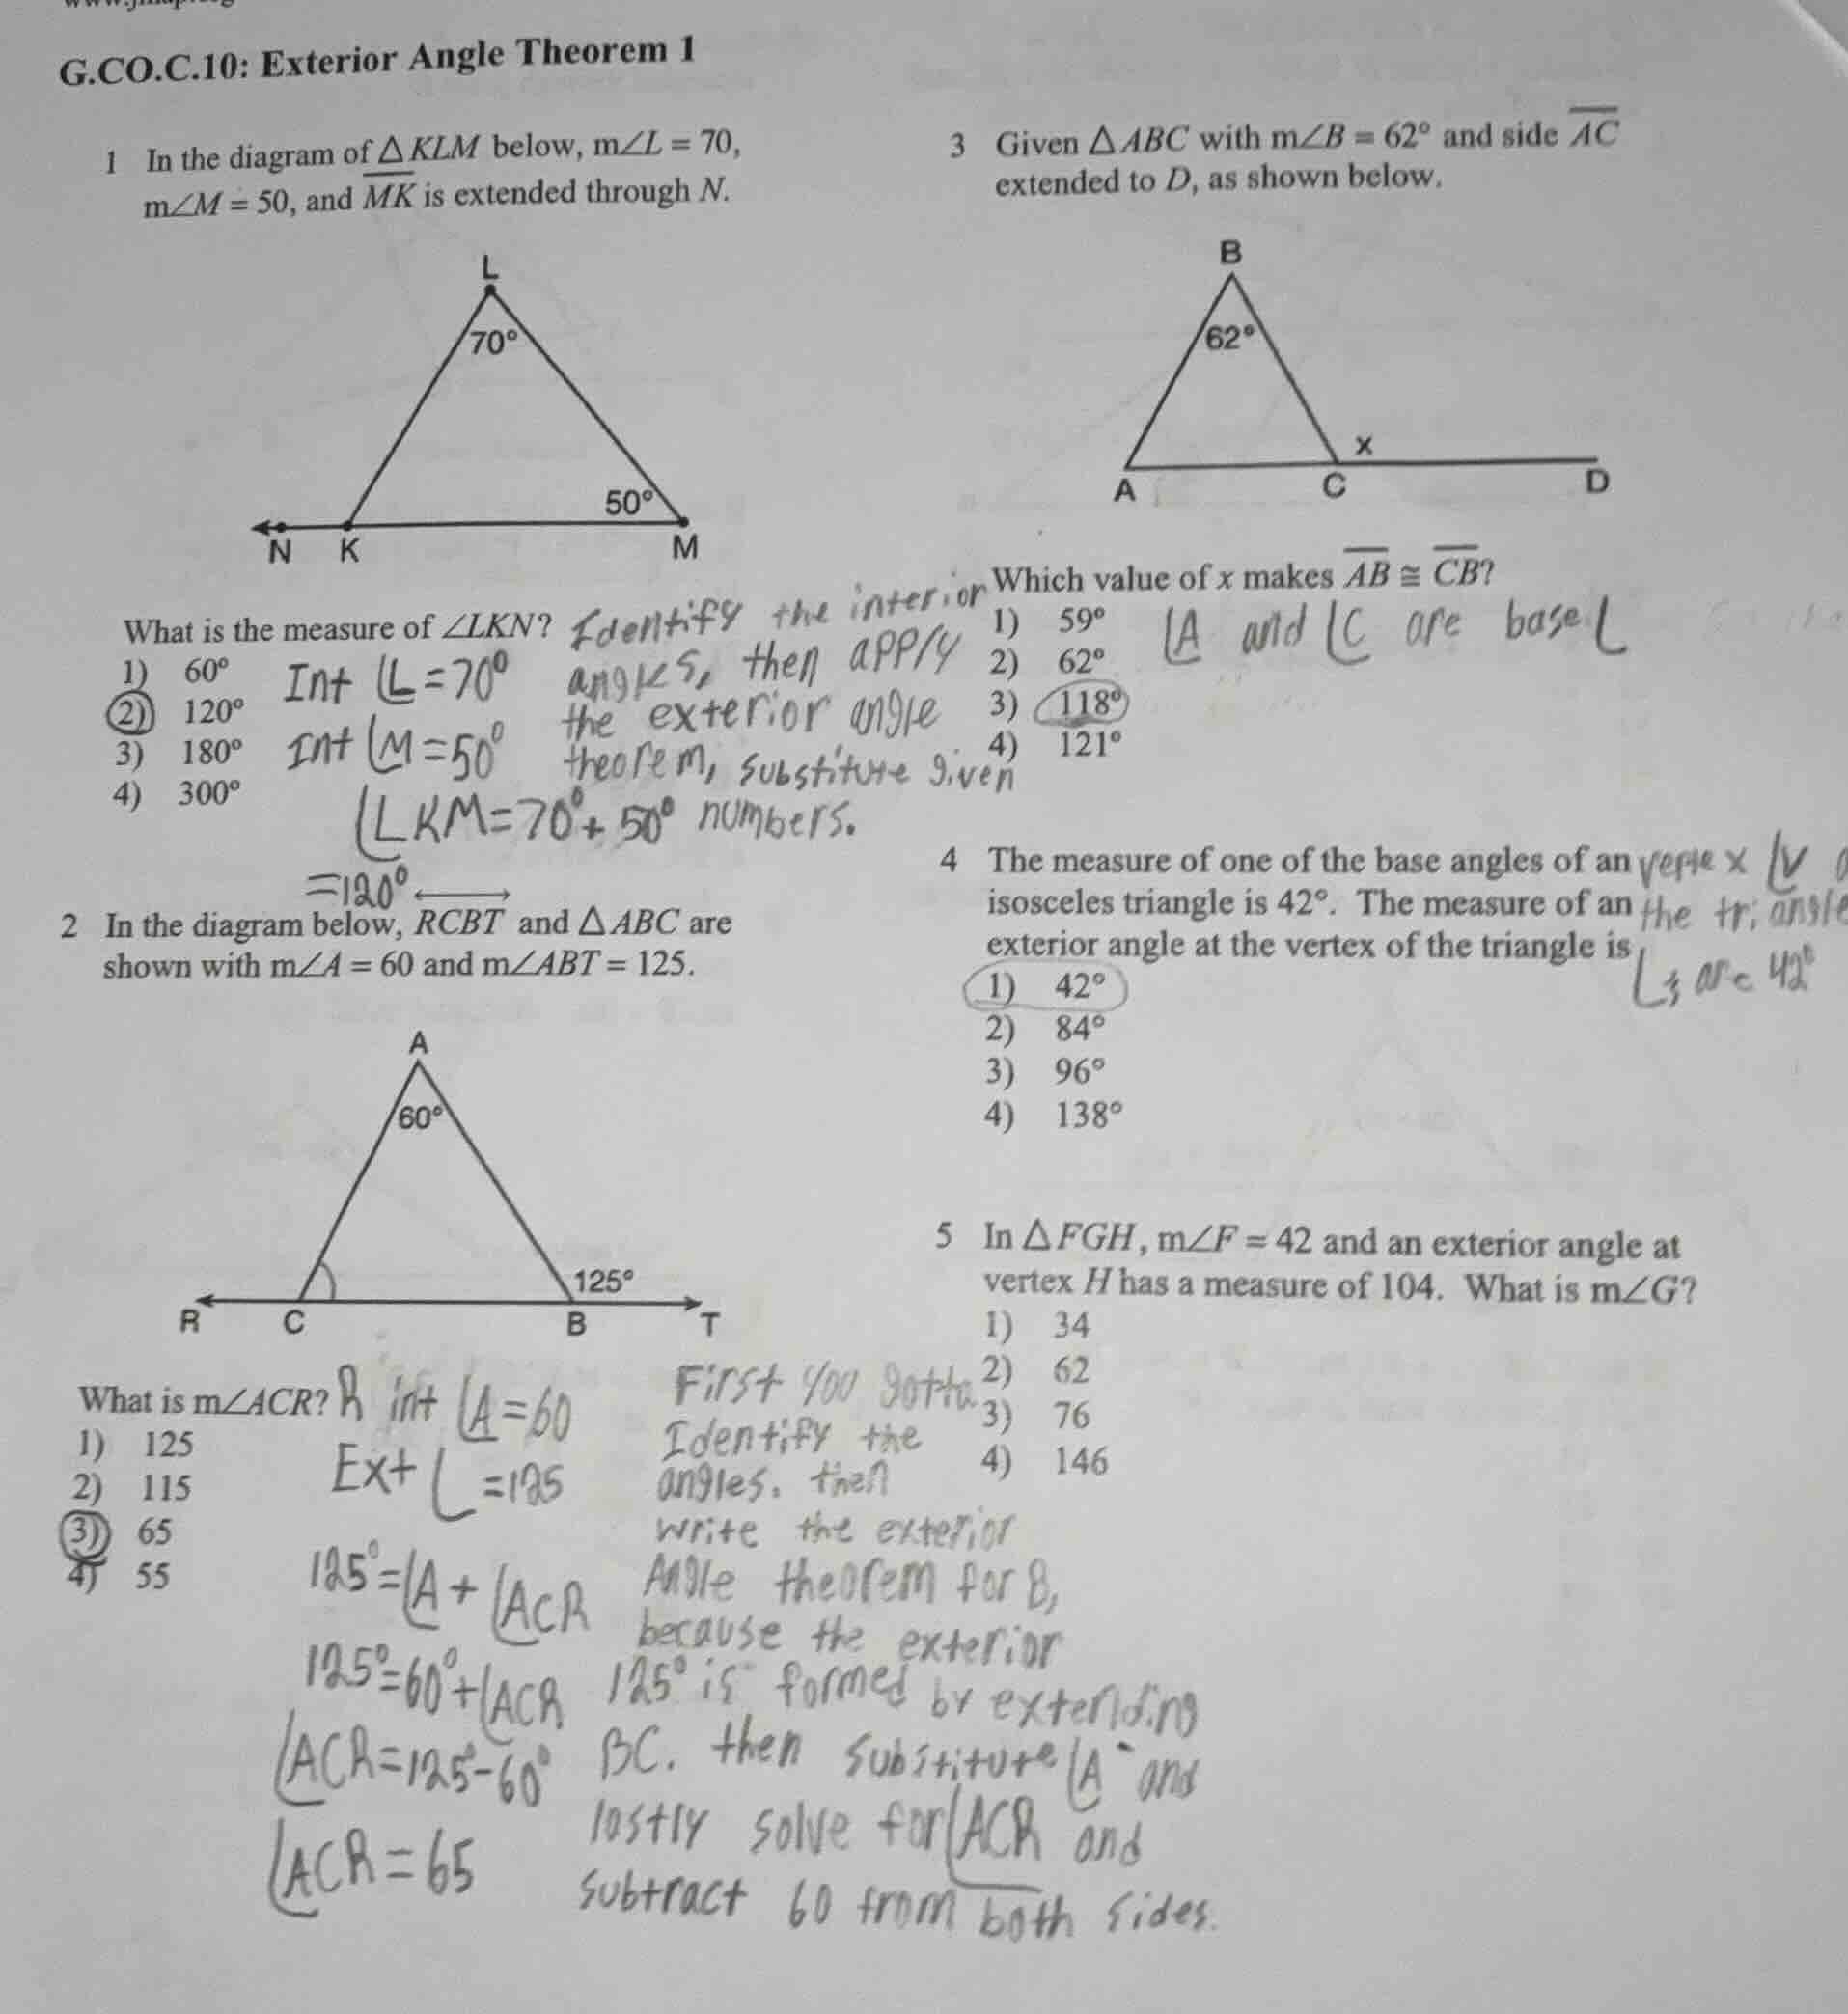 G.CO.C.10: Exterior Angle Theorem 1
1 In the diagram of △KLM below, m∠L = 70,
m∠M = 50, and MK is extended through N.
L
70°
50°
N K M
What is the measure of ∠LKN?
1) 60°
2) 120°
3) 180°
4) 300°
Identify the interior
angles, then apply
the exterior angle
theorem, substiture given
numbers.
Int ∠L = 70°
Int ∠M = 50°
∠LKM = 70° + 50°
= 120°
2 In the diagram below, RCBT and △ABC are
shown with m∠A = 60 and m∠ABT = 125.
A
60°
125°
R C B T
What is m∠ACR?
1) 125
2) 115
3) 65
4) 55
R int ∠A = 60
Ext ∠ = 125
125° = ∠A + ∠ACR
125° = 60° + ∠ACR
∠ACR = 125° - 60°
∠ACR = 65
First you gotta
Identify the
angles. then
write the exterior
Angle theorem for B,
because the exterior
125° is formed by extending
BC. then substitute ∠A and
lastly solve for ∠ACR and
subtract 60 from both sides.
3 Given △ABC with m∠B = 62° and side AC
extended to D, as shown below.
B
62°
x
A C D
Which value of x makes AB ≅ CB?
1) 59°
2) 62°
3) 118°
4) 121°
∠A and ∠C are base ∠
4 The measure of one of the base angles of an
isosceles triangle is 42°. The measure of an
exterior angle at the vertex of the triangle is
1) 42°
2) 84°
3) 96°
4) 138°
vertex ∠V
the triangle
∠s are 42°
5 In △FGH, m∠F = 42 and an exterior angle at
vertex H has a measure of 104. What is m∠G?
1) 34
2) 62
3) 76
4) 146